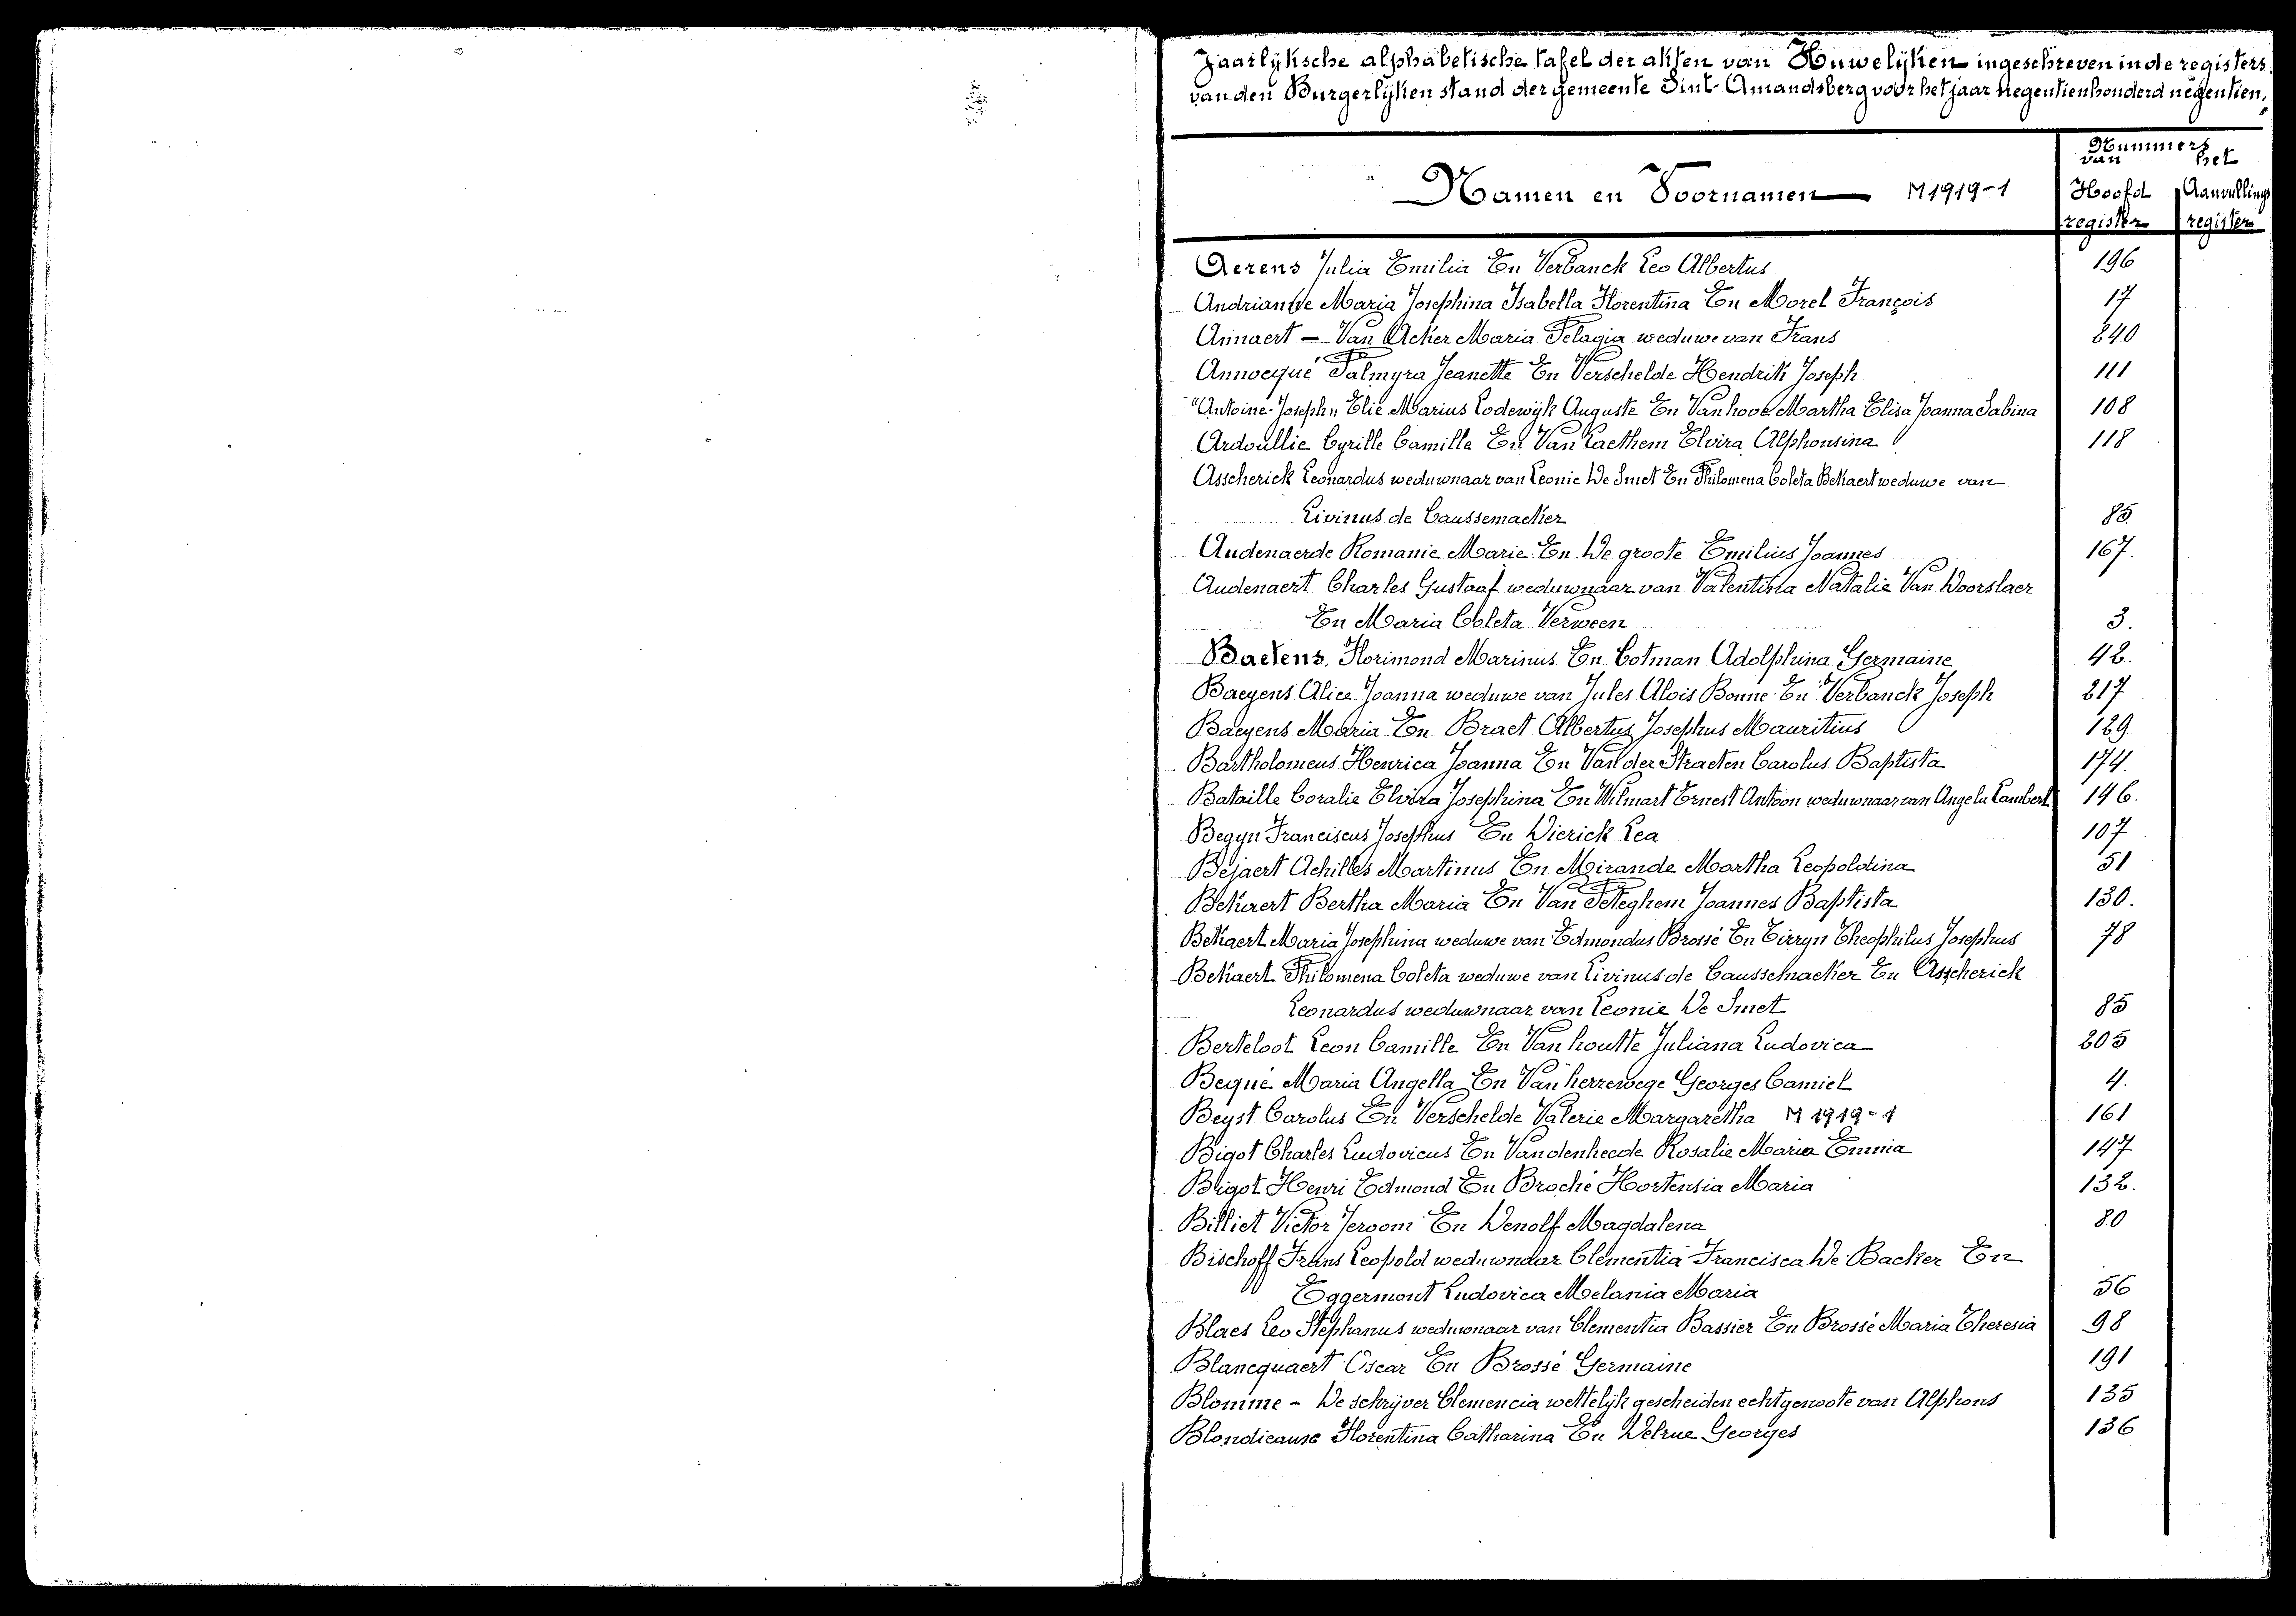 Jaarlyksche alphabetische tafel der akten van Huwelijken ingeschreven in de registers
van den Burgerlijken stand der gemeente Sint-Amandsberg voor het jaar negentienhonderd negentien,
Nummers
van het
Namen en Voornamen M1919-1 Hoofd Aanvullings
register register
Aerens Julia Emilia En Verbanck Leo Albertus 196
Andrianne Maria Josephina Isabella Florentina En Morel François 17
Annaert - Van Acker Maria Pelagia weduwe van Frans 240
Annocqué Palmyra Jeanette En Verschelde Hendrik Joseph 111
"Antoine-Joseph" Elie Marius Lodewijk Auguste En Vanhove Martha Elisa Joanna Sabina 108
Ardoullie Cyrille Camille En Van Laethem Elvira Alphonsina 118
Asscherick Leonardus weduwnaar van Leonie De Smet En Philomena Coleta Bekaert weduwe van
Livinus de Caussemacker 85
Audenaerde Romanie Marie En De groote Emilius Joannes 167.
Audenaert Charles Gustaaf weduwnaar van Valentina Natalie Van Doorslaer
En Maria Coleta Verween 3.
Baetens Florimond Marinus En Cotman Adolphina Germaine 42.
Baeyens Alice Joanna weduwe van Jules Aloïs Bonne En Verbanck Joseph 217
Baeyens Maria En Braet Albertus Josephus Mauritius 129
Bartholomeus Henrica Joanna En Van der Straeten Carolus Baptista 174.
Bataille Coralie Elvira Josephina En Wilmart Ernest Antoon weduwnaar van Angela Lambert 146.
Begyn Franciscus Josephus En Dierick Lea 107
Bejaert Achilles Martinus En Mirande Martha Leopoldina 51
Bekaert Bertha Maria En Van Peteghem Joannes Baptista 130.
Bekaert Maria Josephina weduwe van Edmondus Brossé En Tirryn Theophilus Josephus 78
Bekaert Philomena Coleta weduwe van Livinus de Caussemacker En Asscherick
Leonardus weduwnaar van Leonie De Smet 85
Berteloot Leon Camille En Van houtte Juliana Ludovica 205
Bequé Maria Angella En Van herrewege Georges Camiel 4.
Beyst Carolus En Verschelde Valerie Margaretha M 1919-1 161
Bigot Charles Ludovicus En Vandenheede Rosalie Maria Emma 147
Bigot Henri Edmond En Broché Hortensia Maria 132.
Billiet Victor Jeroom En Denolf Magdalena 80
Bischoff Frans Leopold weduwnaar Clementia Francisca De Backer En
Eggermont Ludovica Melania Maria 56
Blaes Leo Stephanus weduwnaar van Clementia Bassier En Brossé Maria Theresia 98
Blancquaert Oscar En Brossé Germaine 191
Blomme - De schrijver Clemencia wettelijk gescheiden echtgenoote van Alphons 135
Blondieause Florentina Catharina En Delrue Georges 136